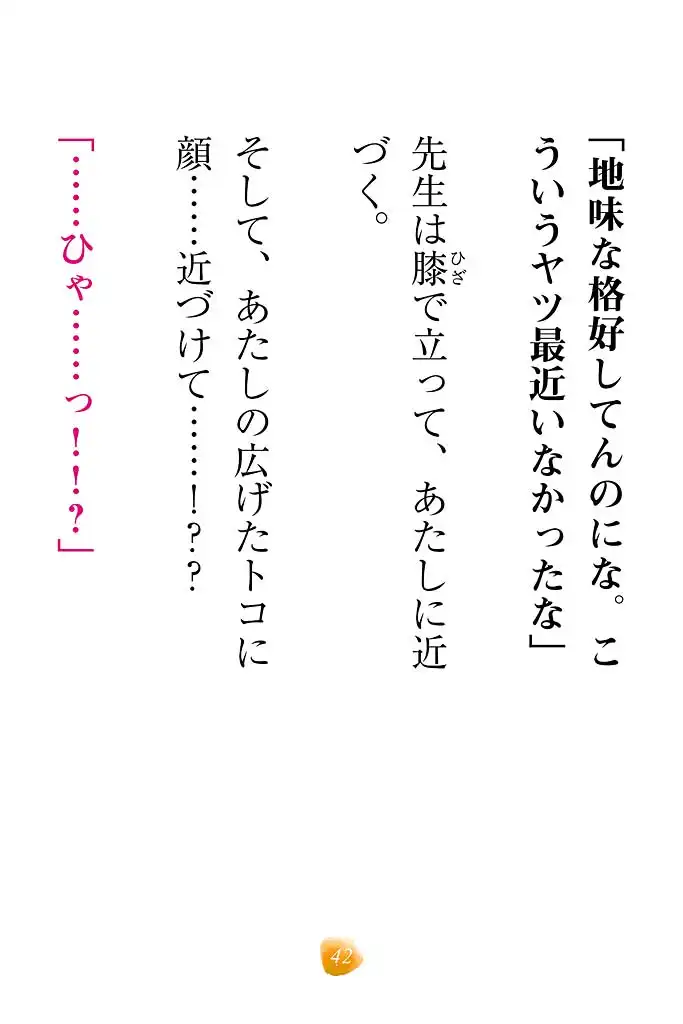 「地味な格好してんのにな。こ
ういうヤツ最近いなかったな」
先生は膝で立って、あたしに近
ひざ
づく。
そして、あたしの広げたトコに
顔……近づけて……！？？
「……ひゃ……っ！！？」
42